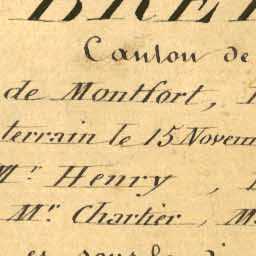 BRE
Canton de
de Montfort,
terrain le 15 Novem
Mr Henry ,
Mr Chartier, M